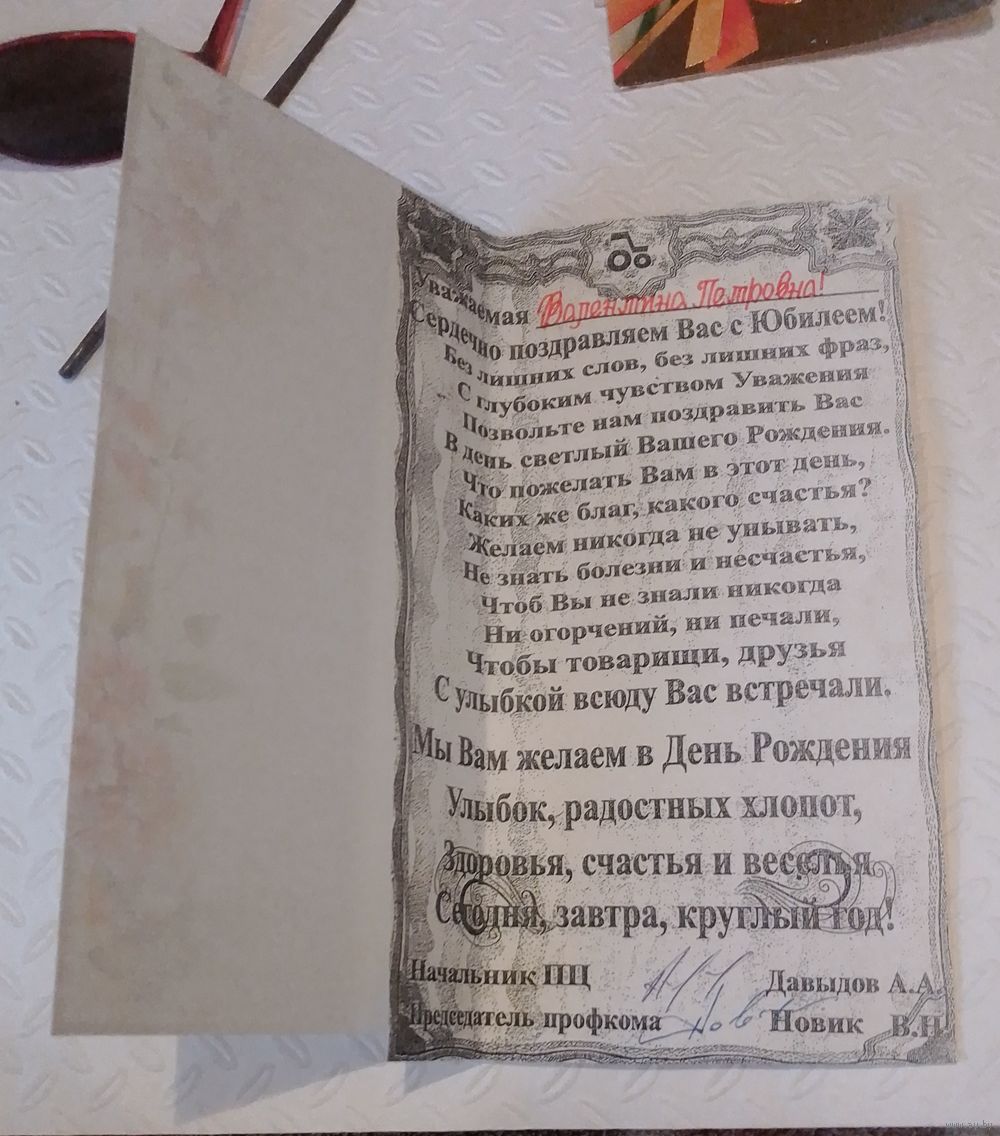 Уважаемая Валентина Петровна!
Сердечно поздравляем Вас с Юбилеем!
Без лишних слов, без лишних фраз,
С глубоким чувством Уважения
Позвольте нам поздравить Вас
В день светлый Вашего Рождения.
Что пожелать Вам в этот день,
Каких же благ, какого счастья?
Желаем никогда не унывать,
Не знать болезни и несчастья,
Чтоб Вы не знали никогда
Ни огорчений, ни печали,
Чтобы товарищи, друзья
С улыбкой всюду Вас встречали.
Мы Вам желаем в День Рождения
Улыбок, радостных хлопот,
Здоровья, счастья и веселья
Сегодня, завтра, круглый год!
Начальник ПЦ Давыдов А.А.
Председатель профкома Новик В.Н.